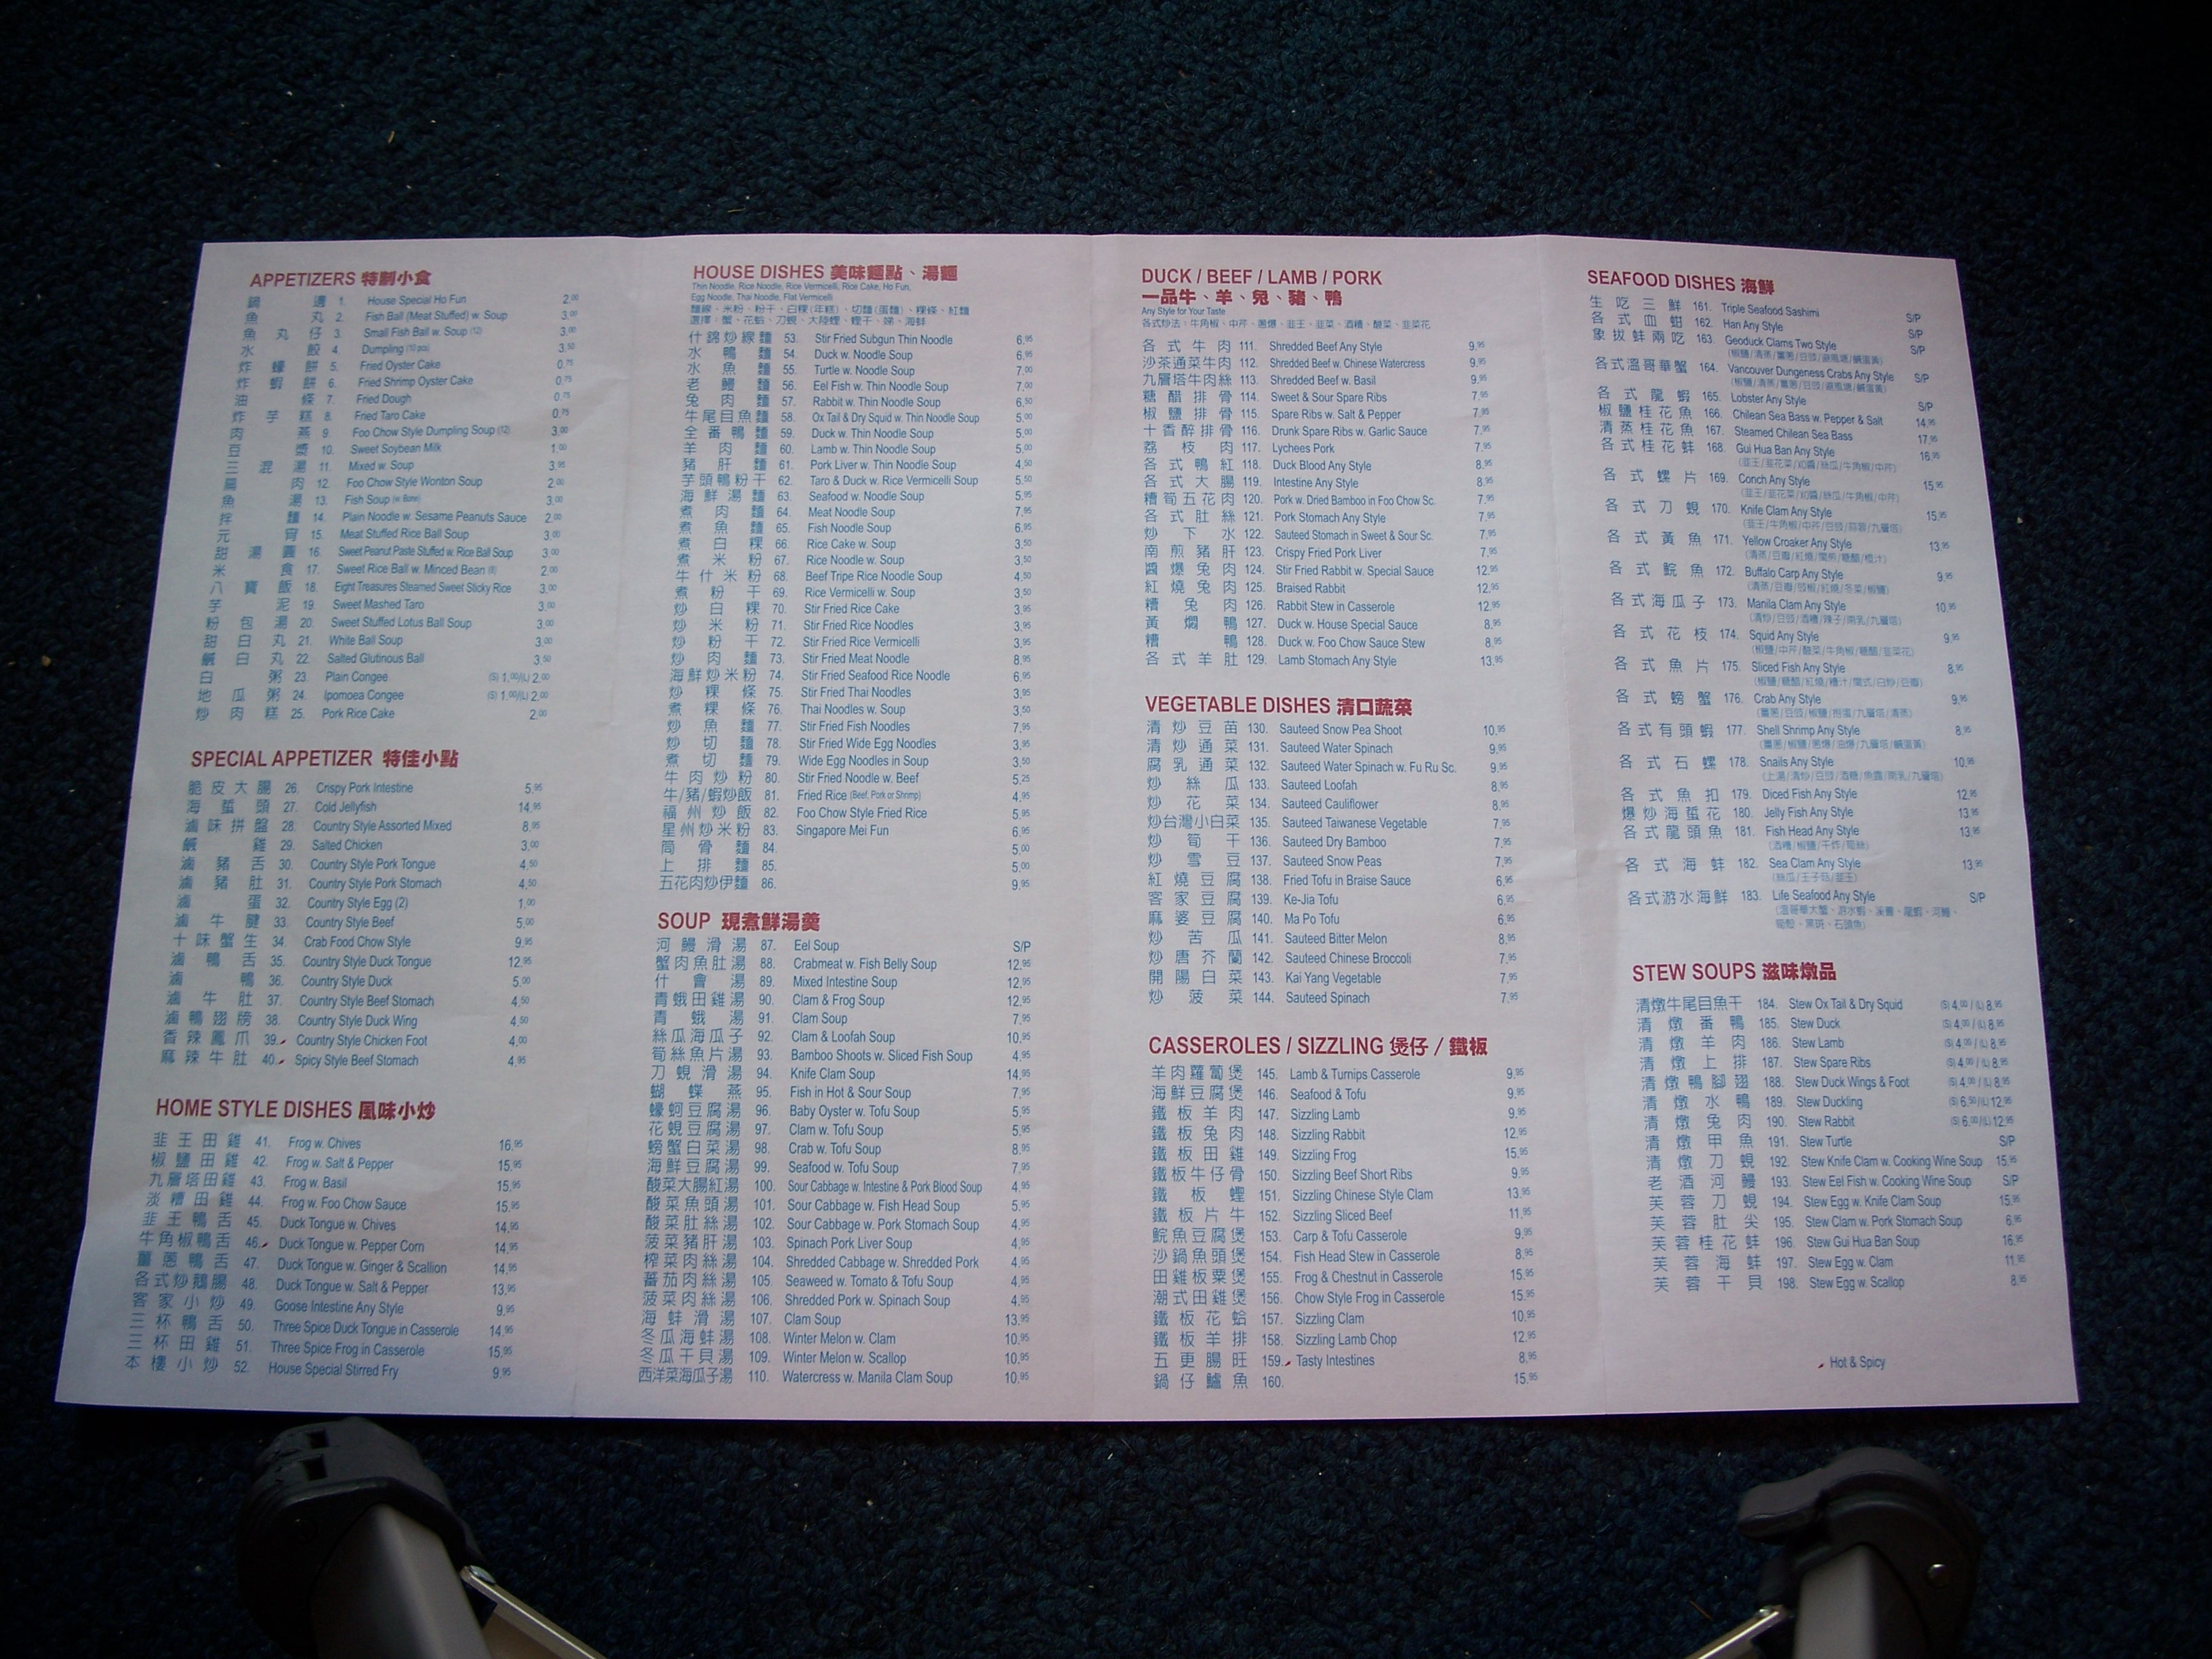 APPETIZERS 特制小食
鍋邊 1. House Special Ho Fun 2.00
魚丸 2. Fish Ball (Meat Stuffed) w. Soup 3.00
魚丸仔 3. Small Fish Ball w. Soup (12) 3.00
水餃 4. Dumpling (10 pcs) 3.50
炸蠔餅 5. Fried Oyster Cake 0.75
炸蝦餅 6. Fried Shrimp Oyster Cake 0.75
油條 7. Fried Dough 0.75
炸芋糕 8. Fried Taro Cake 0.75
肉燕 9. Foo Chow Style Dumpling Soup (12) 3.00
豆漿 10. Sweet Soybean Milk 1.00
三混湯 11. Mixed w. Soup 3.95
扁肉 12. Foo Chow Style Wonton Soup 2.00
魚湯 13. Fish Soup (w. Bone) 3.00
拌麵 14. Plain Noodle w. Sesame Peanuts Sauce 2.00
元宵 15. Meat Stuffed Rice Ball Soup 3.00
甜湯圓 16. Sweet Peanut Paste Stuffed w. Rice Ball Soup 3.00
米食 17. Sweet Rice Ball w. Minced Bean (8) 2.00
八寶飯 18. Eight Treasures Steamed Sweet Sticky Rice 3.00
芋泥 19. Sweet Mashed Taro 3.00
粉包湯 20. Sweet Stuffed Lotus Ball Soup 3.00
甜白丸 21. White Ball Soup 3.00
鹹白丸 22. Salted Glutinous Ball 3.50
白粥 23. Plain Congee (S) 1.00/(L) 2.00
地瓜粥 24. Ipomoea Congee (S) 1.00/(L) 2.00
炒肉糕 25. Pork Rice Cake 2.00
SPECIAL APPETIZER 特佳小點
脆皮大腸 26. Crispy Pork Intestine 5.95
海蜇頭 27. Cold Jellyfish 14.95
滷味拼盤 28. Country Style Assorted Mixed 8.95
鹹雞 29. Salted Chicken 3.00
滷豬舌 30. Country Style Pork Tongue 4.50
滷豬肚 31. Country Style Pork Stomach 4.50
滷蛋 32. Country Style Egg (2) 1.00
滷牛腱 33. Country Style Beef 5.00
十味蟹生 34. Crab Food Chow Style 9.95
滷鴨舌 35. Country Style Duck Tongue 12.95
滷鴨 36. Country Style Duck 5.00
滷牛肚 37. Country Style Beef Stomach 4.50
滷鴨翅膀 38. Country Style Duck Wing 4.50
香辣鳳爪 39. Country Style Chicken Foot 4.00
麻辣牛肚 40. Spicy Style Beef Stomach 4.95
HOME STYLE DISHES 風味小炒
韭王田雞 41. Frog w. Chives 16.95
椒鹽田雞 42. Frog w. Salt & Pepper 15.95
九層塔田雞 43. Frog w. Basil 15.95
淡糟田雞 44. Frog w. Foo Chow Sauce 15.95
韭王鴨舌 45. Duck Tongue w. Chives 14.95
牛角椒鴨舌 46. Duck Tongue w. Pepper Corn 14.95
薑蔥鴨舌 47. Duck Tongue w. Ginger & Scallion 14.95
各式炒鵝腸 48. Duck Tongue w. Salt & Pepper 13.95
客家小炒 49. Goose Intestine Any Style 9.95
三杯鴨舌 50. Three Spice Duck Tongue in Casserole 14.95
三杯田雞 51. Three Spice Frog in Casserole 15.95
本樓小炒 52. House Special Stirred Fry 9.95
HOUSE DISHES 美味麵點、湯麵
Thin Noodle, Rice Noodle, Rice Vermicelli, Rice Cake, Ho Fun,
Egg Noodle, Thai Noodle, Flat Vermicelli
麵線、米粉、粉干、白粿(年糕)、切麵(蛋麵)、粿條、紅麵
選擇：蟹、花蛤、刀蜆、大陸蟶、蟶干、娣、海蚌
什錦炒線麵 53. Stir Fried Subgun Thin Noodle 6.95
水鴨麵 54. Duck w. Noodle Soup 6.95
水魚麵 55. Turtle w. Noodle Soup 7.00
老鰻麵 56. Eel Fish w. Thin Noodle Soup 7.00
兔肉麵 57. Rabbit w. Thin Noodle Soup 6.50
牛尾目魚麵 58. Ox Tail & Dry Squid w. Thin Noodle Soup 5.00
全番鴨麵 59. Duck w. Thin Noodle Soup 5.00
羊肉麵 60. Lamb w. Thin Noodle Soup 5.00
豬肝麵 61. Pork Liver w. Thin Noodle Soup 4.50
芋頭鴨粉干 62. Taro & Duck w. Rice Vermicelli Soup 5.50
海鮮湯麵 63. Seafood w. Noodle Soup 5.95
煮肉麵 64. Meat Noodle Soup 7.95
煮魚麵 65. Fish Noodle Soup 6.95
煮白粿 66. Rice Cake w. Soup 3.50
煮米粉 67. Rice Noodle w. Soup 3.50
牛什米粉 68. Beef Tripe Rice Noodle Soup 4.50
煮粉干 69. Rice Vermicelli w. Soup 3.50
炒白粿 70. Stir Fried Rice Cake 3.95
炒米粉 71. Stir Fried Rice Noodles 3.95
炒粉干 72. Stir Fried Rice Vermicelli 3.95
炒肉麵 73. Stir Fried Meat Noodle 8.95
海鮮炒米粉 74. Stir Fried Seafood Rice Noodle 6.95
炒粿條 75. Stir Fried Thai Noodles 3.95
煮粿條 76. Thai Noodles w. Soup 3.50
炒魚麵 77. Stir Fried Fish Noodles 7.95
炒切麵 78. Stir Fried Wide Egg Noodles 3.95
煮切麵 79. Wide Egg Noodles in Soup 3.50
牛肉炒粉 80. Stir Fried Noodle w. Beef 5.25
牛/豬/蝦炒飯 81. Fried Rice (Beef, Pork or Shrimp) 4.95
福州炒飯 82. Foo Chow Style Fried Rice 5.95
星州炒米粉 83. Singapore Mei Fun 6.95
筒骨麵 84. 5.00
上排麵 85. 5.00
五花肉炒伊麵 86. 9.95
SOUP 現煮鮮湯羹
河鰻滑湯 87. Eel Soup S/P
蟹肉魚肚湯 88. Crabmeat w. Fish Belly Soup 12.95
什會湯 89. Mixed Intestine Soup 12.95
青蛾田雞湯 90. Clam & Frog Soup 12.95
青蛾湯 91. Clam Soup 7.95
絲瓜海瓜子 92. Clam & Loofah Soup 10.95
筍絲魚片湯 93. Bamboo Shoots w. Sliced Fish Soup 4.95
刀蜆滑湯 94. Knife Clam Soup 14.95
蝴蝶燕 95. Fish in Hot & Sour Soup 7.95
蠔蚵豆腐湯 96. Baby Oyster w. Tofu Soup 5.95
花蜆豆腐湯 97. Clam w. Tofu Soup 5.95
螃蟹白菜湯 98. Crab w. Tofu Soup 8.95
海鮮豆腐湯 99. Seafood w. Tofu Soup 7.95
酸菜大腸紅湯 100. Sour Cabbage w. Intestine & Pork Blood Soup 4.95
酸菜魚頭湯 101. Sour Cabbage w. Fish Head Soup 5.95
酸菜肚絲湯 102. Sour Cabbage w. Pork Stomach Soup 4.95
菠菜豬肝湯 103. Spinach Pork Liver Soup 4.95
榨菜肉絲湯 104. Shredded Cabbage w. Shredded Pork 4.95
蕃茄肉絲湯 105. Seaweed w. Tomato & Tofu Soup 4.95
菠菜肉絲湯 106. Shredded Pork w. Spinach Soup 4.95
海蚌滑湯 107. Clam Soup 13.95
冬瓜海蚌湯 108. Winter Melon w. Clam 10.95
冬瓜干貝湯 109. Winter Melon w. Scallop 10.95
西洋菜海瓜子湯 110. Watercress w. Manila Clam Soup 10.95
DUCK / BEEF / LAMB / PORK
一品牛、羊、兔、豬、鴨
Any Style for Your Taste
各式炒法：牛角椒、中芹、蔥爆、韭王、韭菜、酒糟、酸菜、韭菜花
各式牛肉 111. Shredded Beef Any Style 9.95
沙茶通菜牛肉 112. Shredded Beef w. Chinese Watercress 9.95
九層塔牛肉絲 113. Shredded Beef w. Basil 9.95
糖醋排骨 114. Sweet & Sour Spare Ribs 7.95
椒鹽排骨 115. Spare Ribs w. Salt & Pepper 7.95
十香醉排骨 116. Drunk Spare Ribs w. Garlic Sauce 7.95
荔枝肉 117. Lychees Pork 7.95
各式鴨紅 118. Duck Blood Any Style 8.95
各式大腸 119. Intestine Any Style 8.95
糟筍五花肉 120. Pork w. Dried Bamboo in Foo Chow Sc. 7.95
各式肚絲 121. Pork Stomach Any Style 7.95
炒下水 122. Sauteed Stomach in Sweet & Sour Sc. 7.95
南煎豬肝 123. Crispy Fried Pork Liver 7.95
醬爆兔肉 124. Stir Fried Rabbit w. Special Sauce 12.95
紅燒兔肉 125. Braised Rabbit 12.95
糟兔肉 126. Rabbit Stew in Casserole 12.95
黃燜鴨 127. Duck w. House Special Sauce 8.95
糟鴨 128. Duck w. Foo Chow Sauce Stew 8.95
各式羊肚 129. Lamb Stomach Any Style 13.95
VEGETABLE DISHES 清口蔬菜
清炒豆苗 130. Sauteed Snow Pea Shoot 10.95
清炒通菜 131. Sauteed Water Spinach 9.95
腐乳通菜 132. Sauteed Water Spinach w. Fu Ru Sc. 9.95
炒絲瓜 133. Sauteed Loofah 8.95
炒花菜 134. Sauteed Cauliflower 8.95
炒台灣小白菜 135. Sauteed Taiwanese Vegetable 7.95
炒筍干 136. Sauteed Dry Bamboo 7.95
炒雪豆 137. Sauteed Snow Peas 7.95
紅燒豆腐 138. Fried Tofu in Braise Sauce 6.95
客家豆腐 139. Ke-Jia Tofu 6.95
麻婆豆腐 140. Ma Po Tofu 6.95
炒苦瓜 141. Sauteed Bitter Melon 8.95
炒唐芥蘭 142. Sauteed Chinese Broccoli 7.95
開陽白菜 143. Kai Yang Vegetable 7.95
炒菠菜 144. Sauteed Spinach 7.95
CASSEROLES / SIZZLING 煲仔 / 鐵板
羊肉蘿蔔煲 145. Lamb & Turnips Casserole 9.95
海鮮豆腐煲 146. Seafood & Tofu 9.95
鐵板羊肉 147. Sizzling Lamb 9.95
鐵板兔肉 148. Sizzling Rabbit 12.95
鐵板田雞 149. Sizzling Frog 15.95
鐵板牛仔骨 150. Sizzling Beef Short Ribs 9.95
鐵板蟶 151. Sizzling Chinese Style Clam 13.95
鐵板片牛 152. Sizzling Sliced Beef 11.95
鯇魚豆腐煲 153. Carp & Tofu Casserole 9.95
沙鍋魚頭煲 154. Fish Head Stew in Casserole 8.95
田雞板栗煲 155. Frog & Chestnut in Casserole 15.95
潮式田雞煲 156. Chow Style Frog in Casserole 15.95
鐵板花蛤 157. Sizzling Clam 10.95
鐵板羊排 158. Sizzling Lamb Chop 12.95
五更腸旺 159. Tasty Intestines 8.95
鍋仔鱸魚 160. 15.95
SEAFOOD DISHES 海鮮
生吃三鮮 161. Triple Seafood Sashimi S/P
各式血蚶 162. Han Any Style S/P
象拔蚌兩吃 163. Geoduck Clams Two Style S/P
(椒鹽/清蒸/薑蔥/豆豉/避風塘/鹹蛋黃)
各式溫哥華蟹 164. Vancouver Dungeness Crabs Any Style S/P
(椒鹽/清蒸/薑蔥/豆豉/避風塘/鹹蛋黃)
各式龍蝦 165. Lobster Any Style S/P
椒鹽桂花魚 166. Chilean Sea Bass w. Pepper & Salt 14.95
清蒸桂花魚 167. Steamed Chilean Sea Bass 17.95
各式桂花蚌 168. Gui Hua Ban Any Style 16.95
(韭王/韭花菜/XO醬/絲瓜/牛角椒/中芹)
各式螺片 169. Conch Any Style 15.95
(韭王/韭花菜/XO醬/絲瓜/牛角椒/中芹)
各式刀蜆 170. Knife Clam Any Style 15.95
(韭王/牛角椒/中芹/豆豉/蒜蓉/九層塔)
各式黃魚 171. Yellow Croaker Any Style 13.95
(清蒸/豆瓣/紅燒/閩煎/糖醋/橙汁)
各式鯇魚 172. Buffalo Carp Any Style 9.95
(清蒸/豆瓣/豉椒/紅燒/冬菜/椒鹽)
各式海瓜子 173. Manila Clam Any Style 10.95
(清炒/豆豉/酒糟/辣子/南乳/九層塔)
各式花枝 174. Squid Any Style 9.95
(椒鹽/中芹/酸菜/牛角椒/糖醋/韭菜花)
各式魚片 175. Sliced Fish Any Style 8.95
(椒鹽/糖醋/紅燒/糟汁/閩式/白炒/豆瓣)
各式螃蟹 176. Crab Any Style 9.95
各式有頭蝦 177. Shell Shrimp Any Style 8.95
(薑蔥/椒鹽/蔥爆/油爆/九層塔/鹹蛋黃)
各式石螺 178. Snails Any Style 10.95
(上湯/清炒/豆豉/酒糟/魚露/南乳/九層塔)
各式魚扣 179. Diced Fish Any Style 12.95
爆炒海蜇花 180. Jelly Fish Any Style 13.95
各式龍頭魚 181. Fish Head Any Style 13.95
(酒糟/椒鹽/干炸/筍絲)
各式海蚌 182. Sea Clam Any Style 13.95
(絲瓜/王子菇/韭王)
各式游水海鮮 183. Life Seafood Any Style S/P
(溫哥華大蟹、游水蝦、溪鰻、龍蝦、河鰻、
筍殼、黑斑、石頭魚)
STEW SOUPS 滋味燉品
清燉牛尾目魚干 184. Stew Ox Tail & Dry Squid (S) 4.00 / (L) 8.95
清燉番鴨 185. Stew Duck (S) 4.00 / (L) 8.95
清燉羊肉 186. Stew Lamb (S) 4.00 / (L) 8.95
清燉上排 187. Stew Spare Ribs (S) 4.00 / (L) 8.95
清燉鴨腳翅 188. Stew Duck Wings & Foot (S) 4.00 / (L) 8.95
清燉水鴨 189. Stew Duckling (S) 6.50 /(L) 12.95
清燉兔肉 190. Stew Rabbit (S) 6.00 /(L) 12.95
清燉甲魚 191. Stew Turtle S/P
清燉刀蜆 192. Stew Knife Clam w. Cooking Wine Soup 15.95
老酒河鰻 193. Stew Eel Fish w. Cooking Wine Soup S/P
芙蓉刀蜆 194. Stew Egg w. Knife Clam Soup 15.95
芙蓉肚尖 195. Stew Clam w. Pork Stomach Soup 6.95
芙蓉桂花蚌 196. Stew Gui Hua Ban Soup 16.95
芙蓉海蚌 197. Stew Egg w. Clam 11.95
芙蓉干貝 198. Stew Egg w. Scallop 8.95
Hot & Spicy